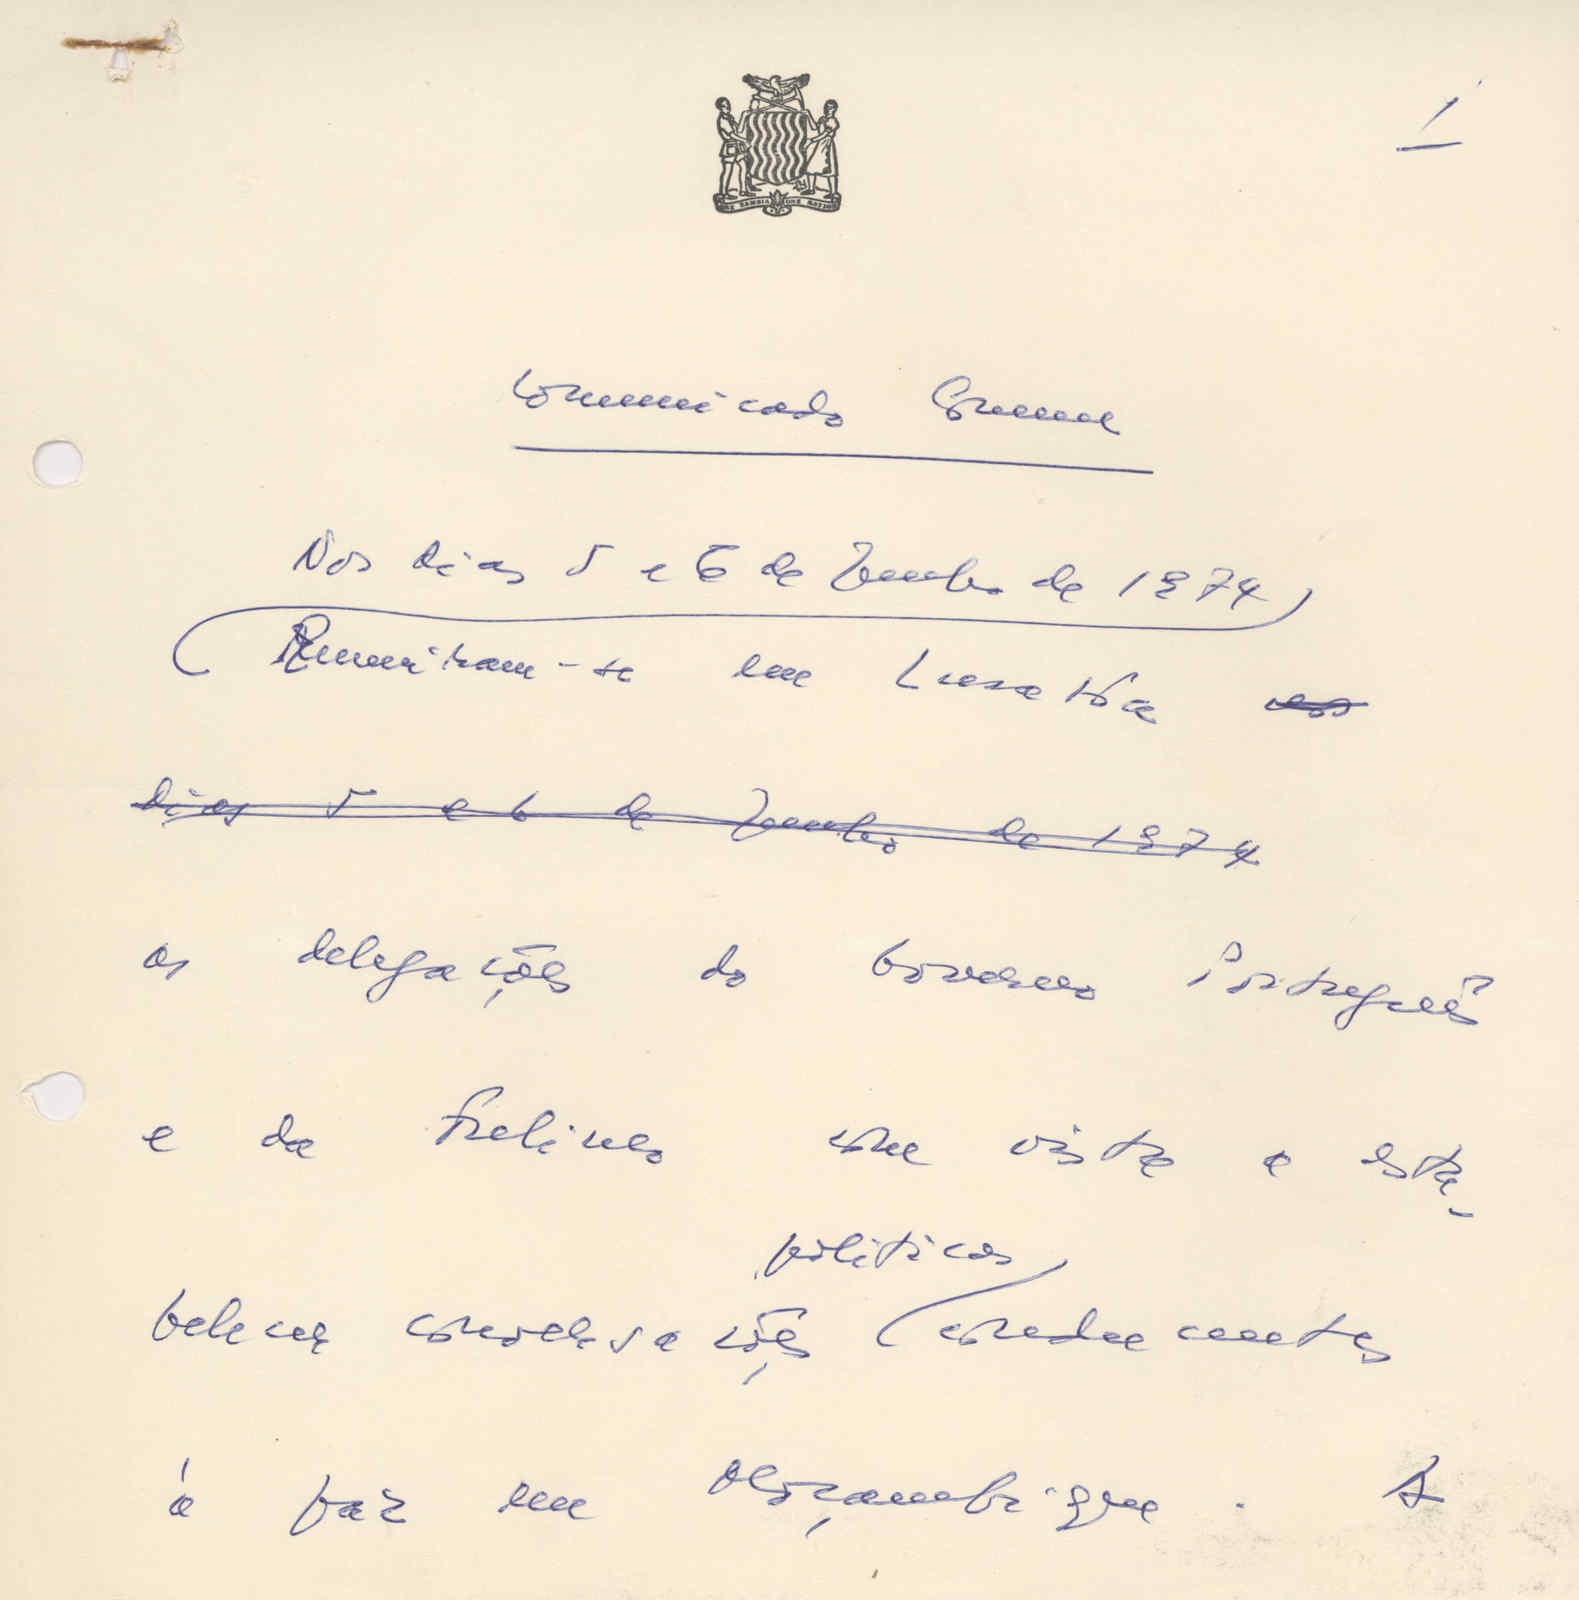 1
ONE ZAMBIA ONE NATION
Comunicado Comum
Nos dias 5 e 6 de Junho de 1974,
Reuniram-se em Lusaka nos
dias 5 e 6 de Junho de 1974
as delegações do Governo Português
e da Frelimo com vista a esta-
belecer conversações
políticas
conducentes
à paz em Moçambique. A